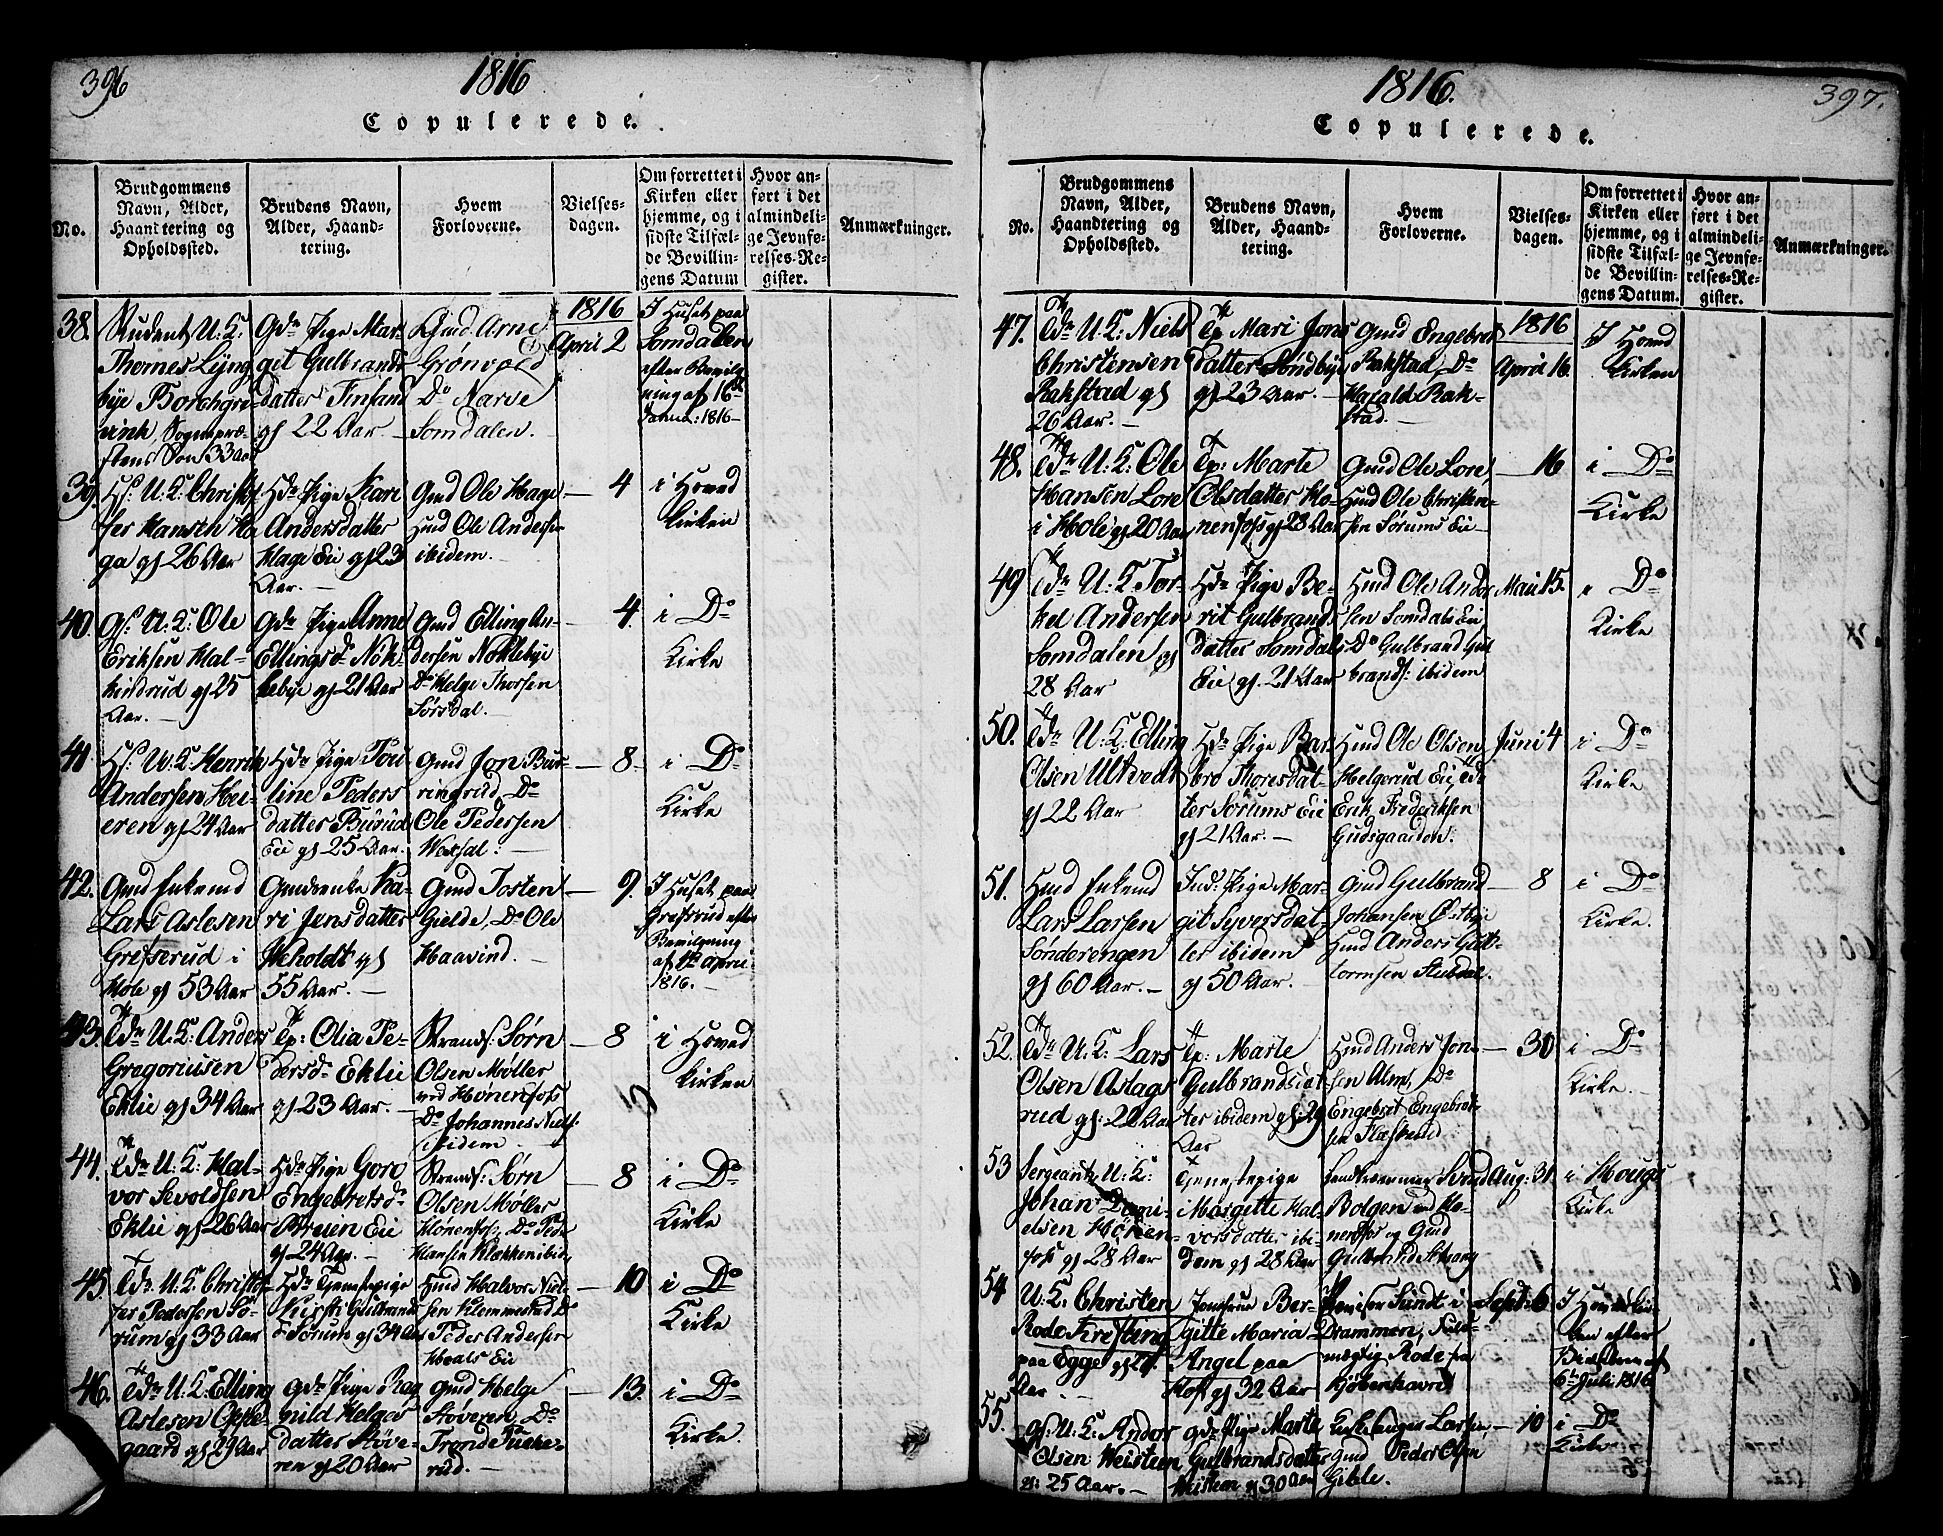 396
1816
Copulerede.
No.
Brudgommens Navn, Alder, Haandtering og Opholdssted.
Brudens Navn, Alder, Haandtering.
Hvem Forloverne.
Vielsesdagen.
Om forrettet i Kirken eller hjemme, og i sidste Tilfælde Bevillingens Datum
Hvor anført i det almindelige Jevnførelses-Register.
Anmærkninger.
38.
Student U. K:
Thomes Lyng
bye Borchgre
vink, Sognepræ
stens Søn 33 Aar
Gdr Pige Mar
git Gulbrands
datter Finsand
gl 22 Aar.
Gmd. Arne
Grønvold
Do Narve
Somdalen.
1816
April 2
I Huset paa
Somdalen
efter Bevilg
ning af 16de
Januar: 1816
39.
Hs: U. K: Christof
fer Hansen Ha
ga gl 26 Aar
Hdr Pige Kari
Andersdatter
Hage Eie gl 23
Aar.
Gmd Ole Hage
Hmd Ole Anderse
ibidem.
4
i Hoved
kirken
40.
Gs: U. K: Ole
Eriksen Hal-
kindrud gl 25
Aar.
Gdr Pige Anne
Ellingsdr Nök
lebye gl 21 Aar
Gmd Elling An-
dersen Noklebye
Do Helge Thorsen
Sørsdal.
4
i Do
Kirke
41
Hs: U. K: Henrik
Andersen Hei-
eren gl 24 Aar
Hdr Pige Tori
line Peders
datter Burud
Eie gl 25 Aar.
Gmd Jon Bur-
ringrud, Do
Ole Pedersen
Wexsal:
8.
i Do
Kirke
42.
Gmd Enkemd
Lars Aslesen
Grefserud i
Hole gl 53 Aar
Gmdsenke Ka-
ri Jensdatter
Weholdt gl
55 Aar.
Gmd Tosten
Gielde, Do Ole
Haavind.
9.
I Huset paa
Grefsrud efter
Bevilgning
af 1ste april
1816.
43.
Tdr U. K: Anders
Gregoriusen
Eklie gl 34 Aar
Tp: Olia Pe-
dersdr Eklie
gl 23 Aar.
Strands: Sørn
Olsen Møller
ved Hønenfoss
Do Johannes Niels:
ibidem.
8
i Hoved
kirken
44.
Tdr U. K: Hal-
vor Sevoldsen
Eklie gl 26 Aar
Hdr Pige Goro
Engebretsdr
Breien Eie
gl 24 Aar.
Strands: Sørn
Olsen Møller
Hönenfoss, Do Peder
Hansen Klækken ibid,
8
i Do
Kirke
45.
Tdr U. K: Christof
fer Pedersen So-
rum gl 33 Aar
Hdr Tjenestepige
Kirsti Gulbrands
dr Sorum gl 34 Aar
Hmd Halvor Niel
sen Klemmestrud Do
Peder Andersen
Hvals Eie
10
i Do
Kirke
46.
Tdr U. K: Elling
Aslesen Oppe
gaard gl 29 Aar
Gdr Pige Rag
nild Helges
datter Støve-
ren gl 20 Aar
Gmd Helge
Støveren, Do
Trond Finke-
rud.
13.
i Do
Kirke.
397.
1816.
Copulerede.
No.
Brudgommens Navn, Alder, Haandtering og Opholdssted.
Brudens Navn, Alder, Haandtering.
Hvem Forloverne.
Vielsesdagen.
Om forrettet i Kirken eller hjemme, og i sidste Tilfælde Bevillingens Datum.
Hvor anført i det almindelige Jevnførelses-Register.
Anmærkninger.
47.
Tdr U. K: Niels
Christensen
Rakstad gl
26 Aar.
Tp: Mari Jons
datter Søndbye
gl 23 Aar.
Gmd Engebret
Rakstad, Do
Harald Rak-
stad.
1816
April 16.
I Hoved
Kirken
48.
Tdr U. K: Ole
Hansen Lore
i Hole gl 20 Aar
Tp: Marte
Olsdatter Hö-
nenfoss gl 28 Aar
Gmd Ole Lore,
Hmd Ole Christen-
sen Sørums Eie
16
i Do
Kirke
49
Tdr U. K: Tor-
kel Andersen
Somdalen gl
28 Aar
Hdr Pige Be-
rit Gulbrands
datter Somdals
Eie gl. 21 Aar
Hmd Ole Ander
sen Somdals Eie
Do Gulbrand Gul
brands: ibidem
Mai 15.
i Do
Kirke
50.
Tdr U. K: Elling
Olsen Ultvedt
gl 22 Aar
Hdr Pige Bar
bro Thoresdat-
ter Sorums Eie
gl 21 Aar.
Hmd Ole Olsen
Helgerud Eie, Tdr
Erik Frederiksen
Gudsgaarden.
Juni 4
i Do
Kirke
51.
Hmd Enkemd
Lars Larsen
Sønderengen
gl 60 Aar.
Ind: Pige Mar-
git Syversdat,
ter ibidem
gl 50 Aar.
Gmd Gulbrand
Johansen Østbye
Hmd Anders Gutt-
tormsen Stubdal.
8
i Do
Kirke.
52.
Tdr U. K: Lars
Olsen Aslag
rud gl. 22 Aar
Tp: Marte
Gulbrandsdat
ter ibidem gl: 29
Aar
Hmd Anders Jon-
sen Alms, Do
Engebret Engebret-
sen Flaskerud
30
i Do
Kirke.
53
Sergeant U. K:
Johan Dani-
elsen Hönen-
foss gl 28 Aar
Tjenestepige
Margitte Hal-
vorsdatter ibi-
dem gl 28 Aar
Svend
Bolgen ved Hö-
nenfoss og Gmd
Aug: 31
i Hougs
Kirke
54
U. K: Christen
Rode Krefting
paa Egge gl 27.
Aar.
Jomfrue Ber-
gitte Maria
Angel paa
Hof gl 32 Aar
Sundt i
Drammen, Fuld-
mægtig Rode fra
Kjøbenhavn
Sept: 6
I Hovedkir-
ken efter
af
6te Juli 1816
55.
gs: U. K: Anders
Olsen Weisteen
gl: 25 Aar.
gdr Pige Marte
Gulbrandsdatter
Weisteen gl 30 Aar
Larsen
Gmd Peder Olsen
Gielle.
10
i Do
Kirke